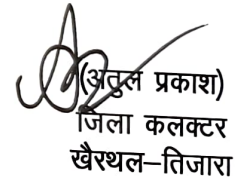 (अतुल प्रकाश)
जिला कलक्टर
खैरथल–तिजारा